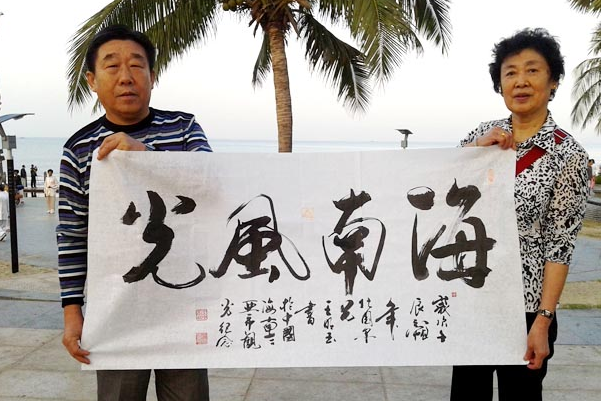 海南風光
歲次壬
辰
年
兄
書
於中國
海南三
亞市觀
光紀念